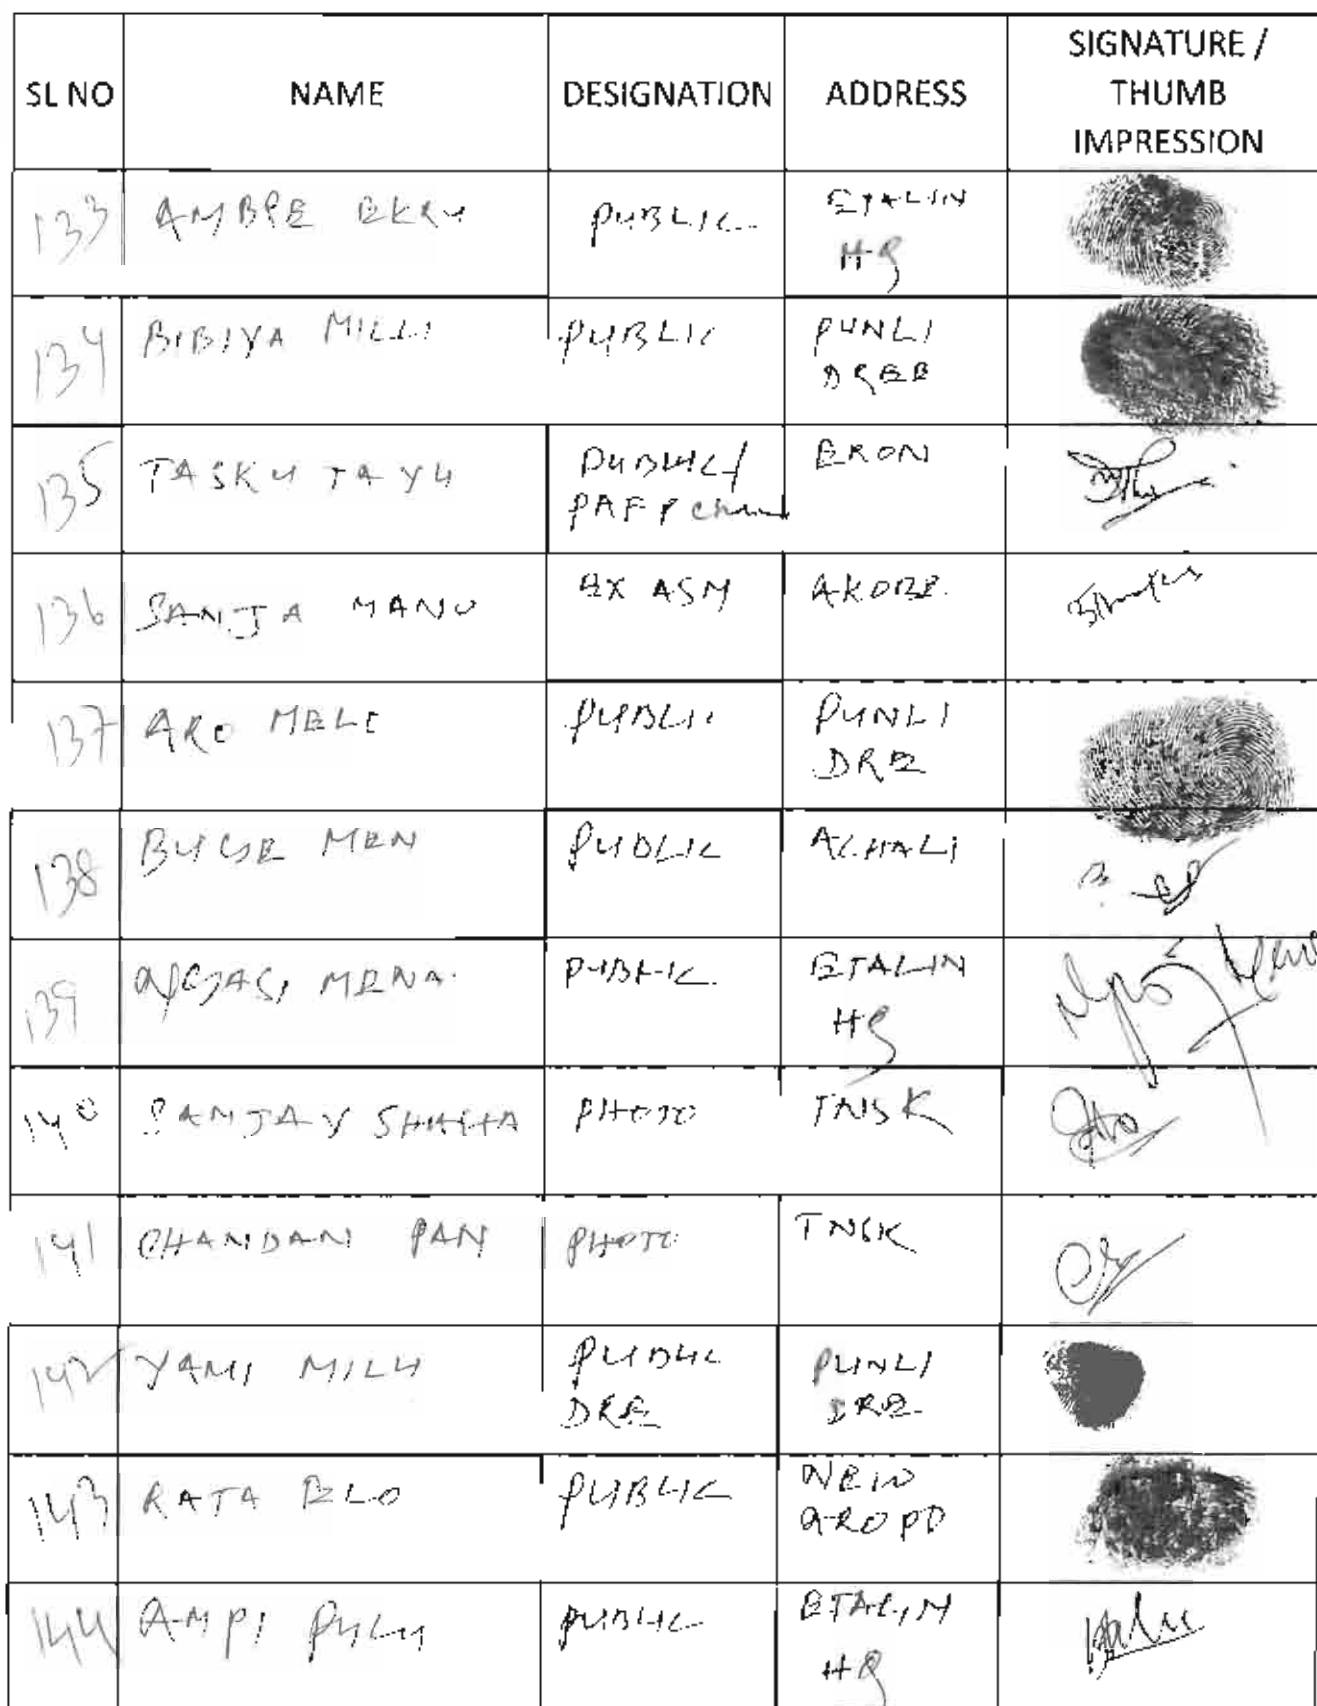 SL NO NAME DESIGNATION ADDRESS SIGNATURE /
THUMB
IMPRESSION
133 AMBPE EKRU PUBLIC ETALIN
HQ
134 BIBIYA MILLI PUBLIC PUNLI
DREE
135 TASKU TAYU PUBLIC/ ERON
PAFP
136 SANJA MANU EX ASM
137 ARO MELO PUBLIC PUNLI
DRE
138 MEN PUBLIC ACHALI
139 MENA PUBLIC ETALIN
HQ
140 SANJAY SHAHA PHOTO TNSK
141 CHANDAN PAN PHOTO TNSK
142 YAMI MILU PUBLIC PUNLI
DRE DRE
143 RATA ELO PUBLIC NEW
AROPO
144 AMPI PULU PUBLIC ETALIN
HQ